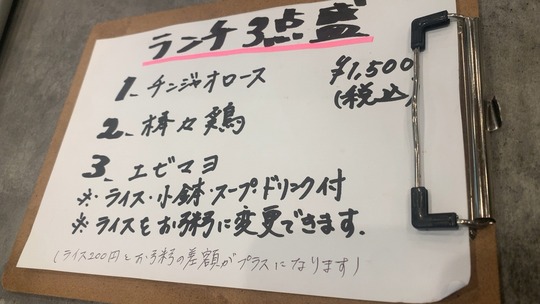 ランチ3点盛
1. チンジャオロース
¥1,500
(税込)
2. 棒々鶏
3. エビマヨ
※ ライス・小鉢・スープ・ドリンク付
※ ライスをお粥に変更できます.
(ライス200円とお粥の差額がプラスになります)